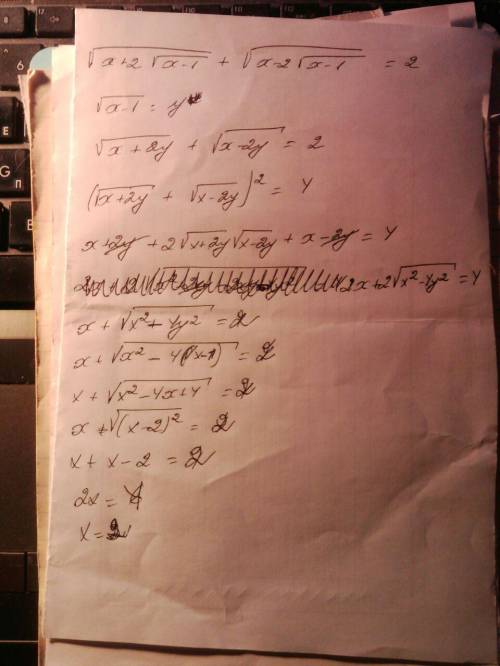 √(x+2√(x-1)) + √(x-2√(x-1)) = 2
√(x-1) = y
√(x+2y) + √(x-2y) = 2
(√(x+2y) + √(x-2y))² = 4
x+2y + 2√(x+2y)√(x-2y) + x-2y = 4
2x+2√(x²-4y²) = 4
x + √(x²-4y²) = 2
x + √(x²-4(x-1)) = 2
x + √(x²-4x+4) = 2
x + √((x-2)²) = 2
x + x - 2 = 2
2x = 4
x = 2